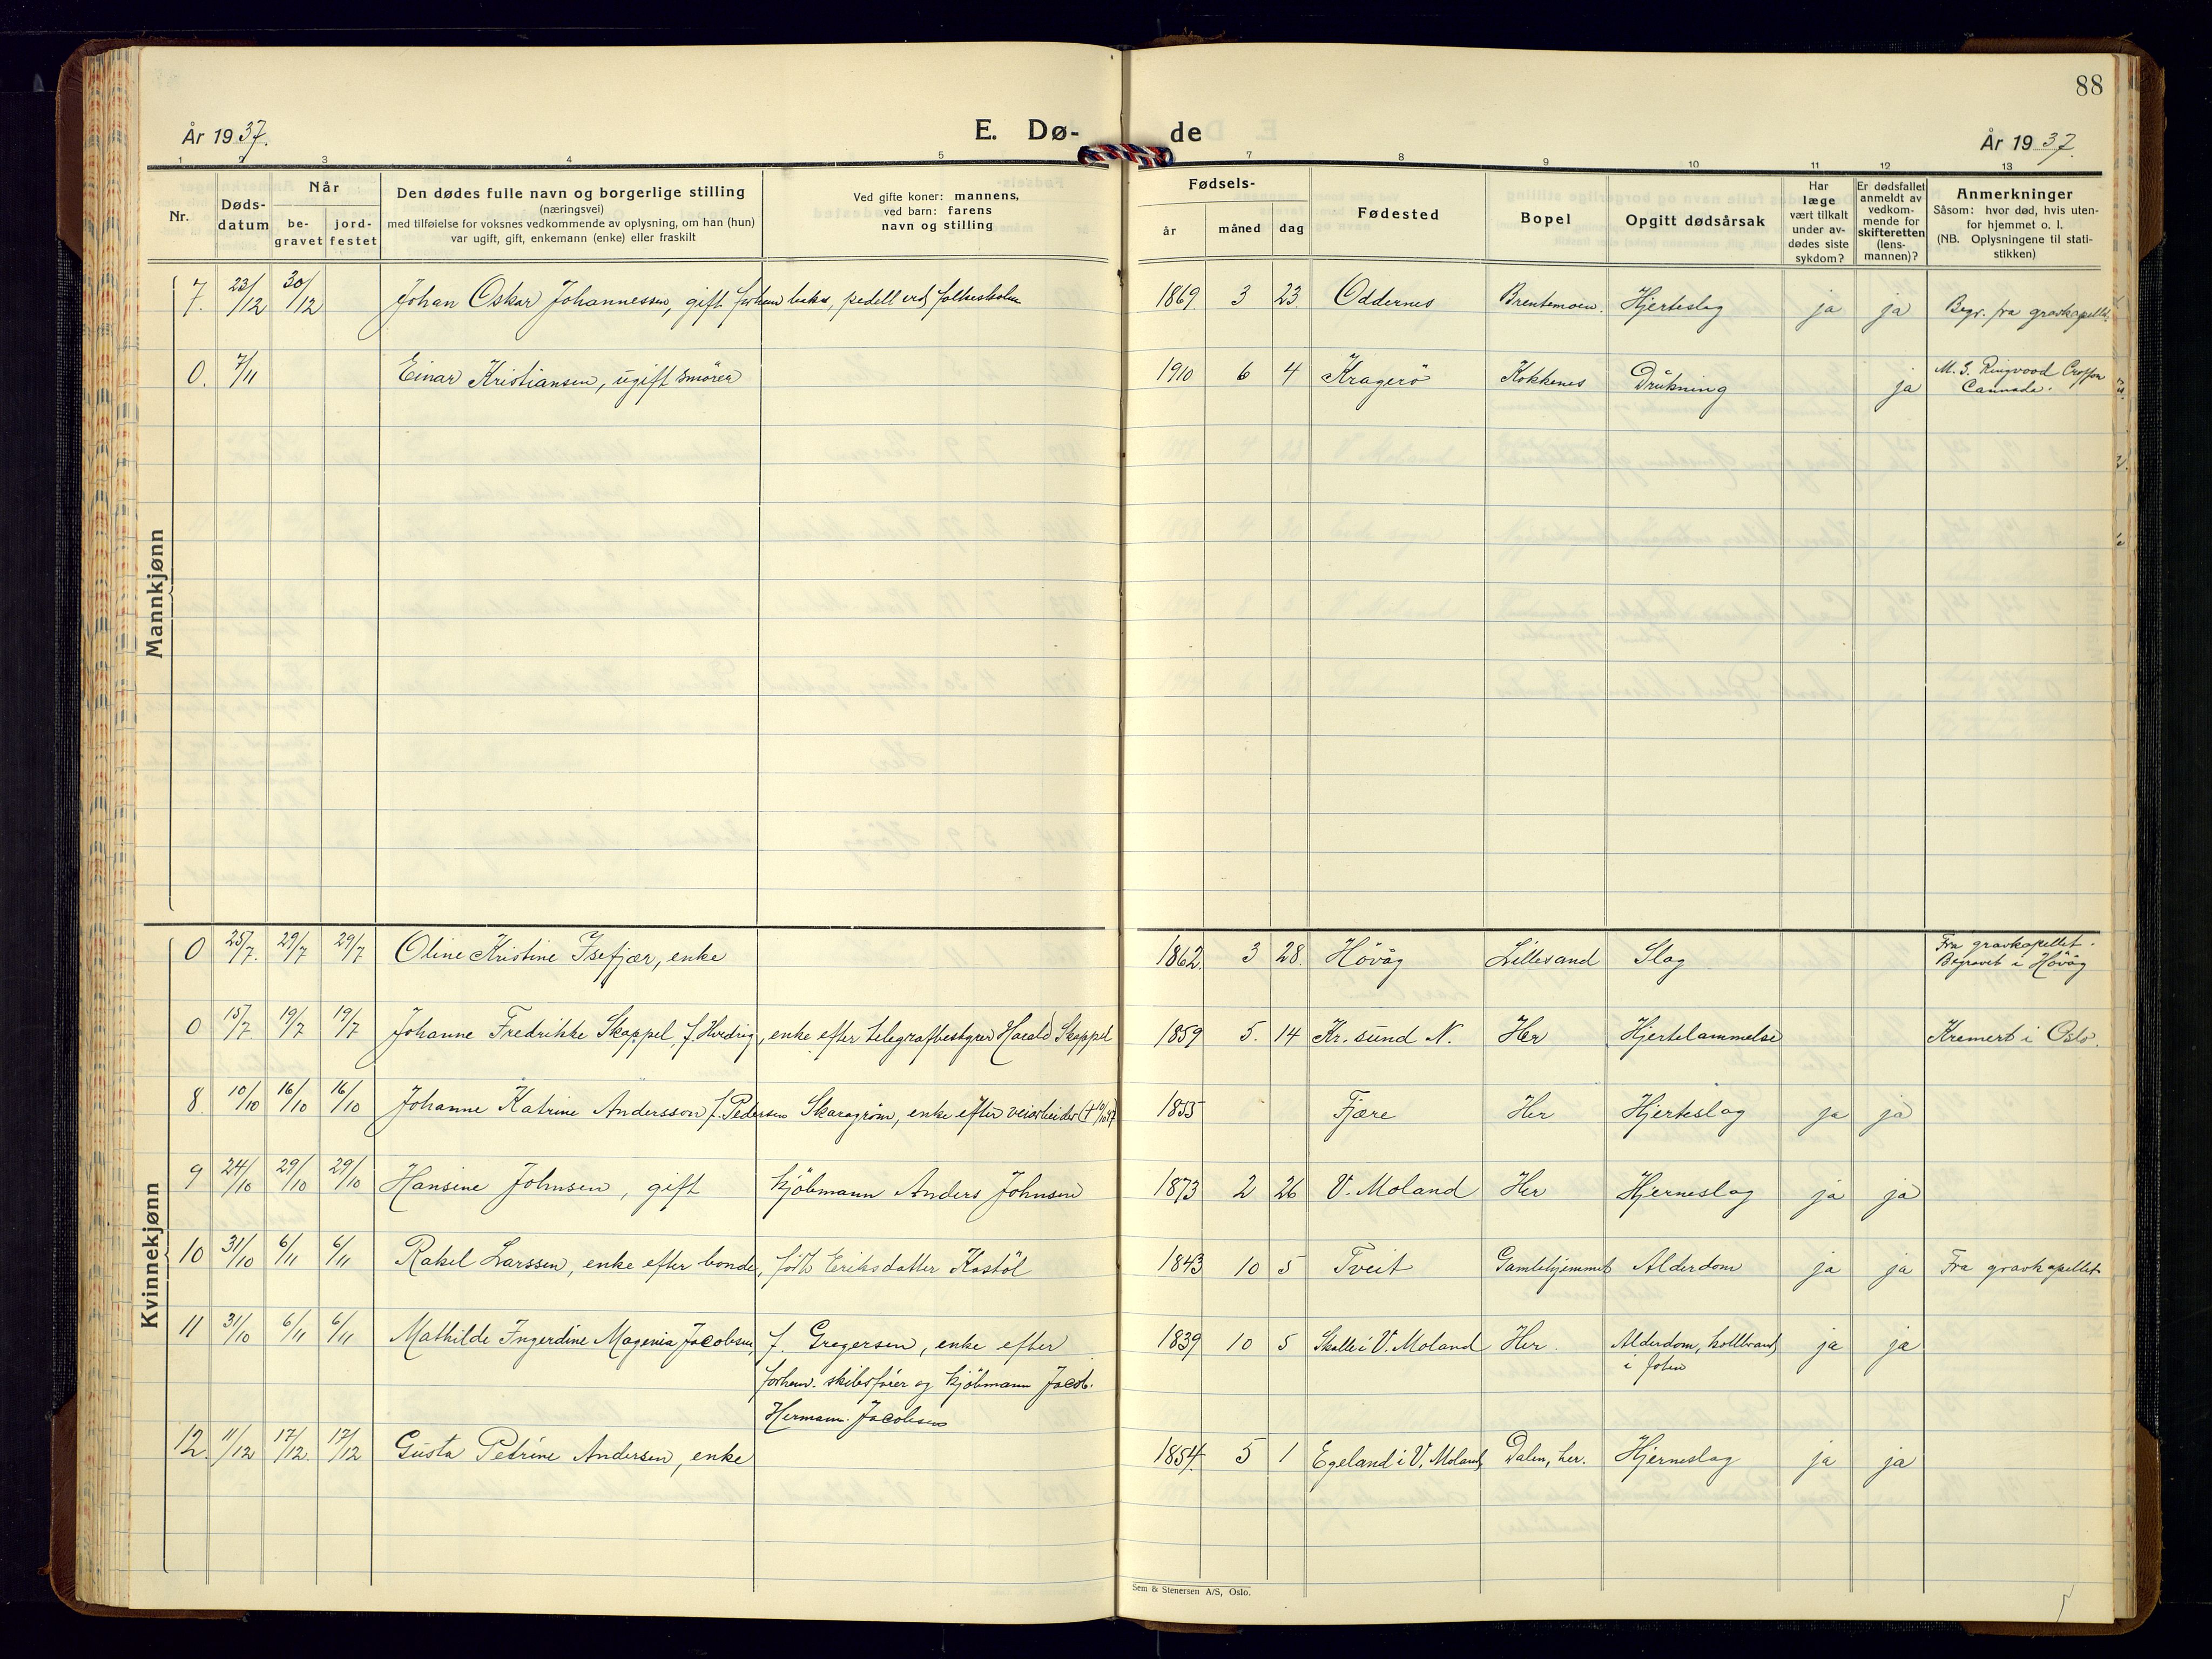 88
År 1937.
E. Dø-
de
År 1937.
1 2 3 4 5 7 8 9 10 11 12 13
Nr.
Døds-
datum
Når
be-
gravet
jord-
festet
Den dødes fulle navn og borgerlige stilling
(næringsvei)
med tilføielse for voksnes vedkommende av oplysning, om han (hun)
var ugift, gift, enkemann (enke) eller fraskilt
Ved gifte koner: mannens,
ved barn: farens
navn og stilling
Fødsels-
år
måned
dag
Fødested
Bopel
Opgitt dødsårsak
Har
læge
vært tilkalt
under av-
dødes siste
sykdom?
Er dødsfallet
anmeldt av
vedkom-
mende for
skifteretten
(lens-
mannen)?
Anmerkninger
Såsom: hvor død, hvis uten-
for hjemmet o. l.
(NB. Oplysningene til stati-
stikken)
Mannkjønn
7. 23/12 30/12 Johan Oskar Johannessen, gift, forhenv. pedell ved folkeskolen 1869. 3 23. Oddernes Brentemoen. Hjerteslag ja ja Begr. fra gravkapellet.
0. 7/11 Einar Kristiansen, ugift smører 1910 6 4 Kragerö Kokkenes Drukning ja M. S. Ringwood
Cannada.
Kvinnekjønn
0 25/7. 29/7 29/7 Oline Kristine Isefjær, enke 1862. 3 28. Hövåg Lillesand Slag Fra gravkapellet.
Begravet i Hövåg
0 15/7. 19/7 19/7 Johanne Fredrikke Skappel, f. , enke efter telegrafbestyrer Harald Skappel 1859 5. 14 Kr.sund N. Her Hjertelammelse Kremert i Oslo.
8 10/10 16/10 16/10 Johanne Katrine Andersson f. Pedersen Skaragröm, enke efter veiarbeider 1855 Fjære Her Hjerteslag ja ja
9 24/10 29/10 29/10 Hansine Johnsen, gift kjöbmann Anders Johnsen 1873 2 26 V. Moland Her Hjerneslag ja ja
10 31/10 6/11 6/11 Rakel Larssen, enke efter bonde, född Eriksdatter Kostöl 1843 10 5 Tveit Gamlehjemmet Alderdom ja ja Fra gravkapellet
11 31/10 6/11 6/11 Mathilde Ingerdine Magenia Jacobsen, f. Gregersen, enke efter 1839 10 5 Skalle i V. Moland Her. Alderdom, kollbrand ja ja
forhenv. skibsförer og kjöbmann Jacob. i foten
Hermann. Jacobsen
12. 11/12 17/12. 17/12 Gusta Petrine Andersen, enke 1854. 5 1 Egeland i V. Moland Dalen, her. Hjerneslag ja ja
Sem & Stenersen A/S, Oslo.